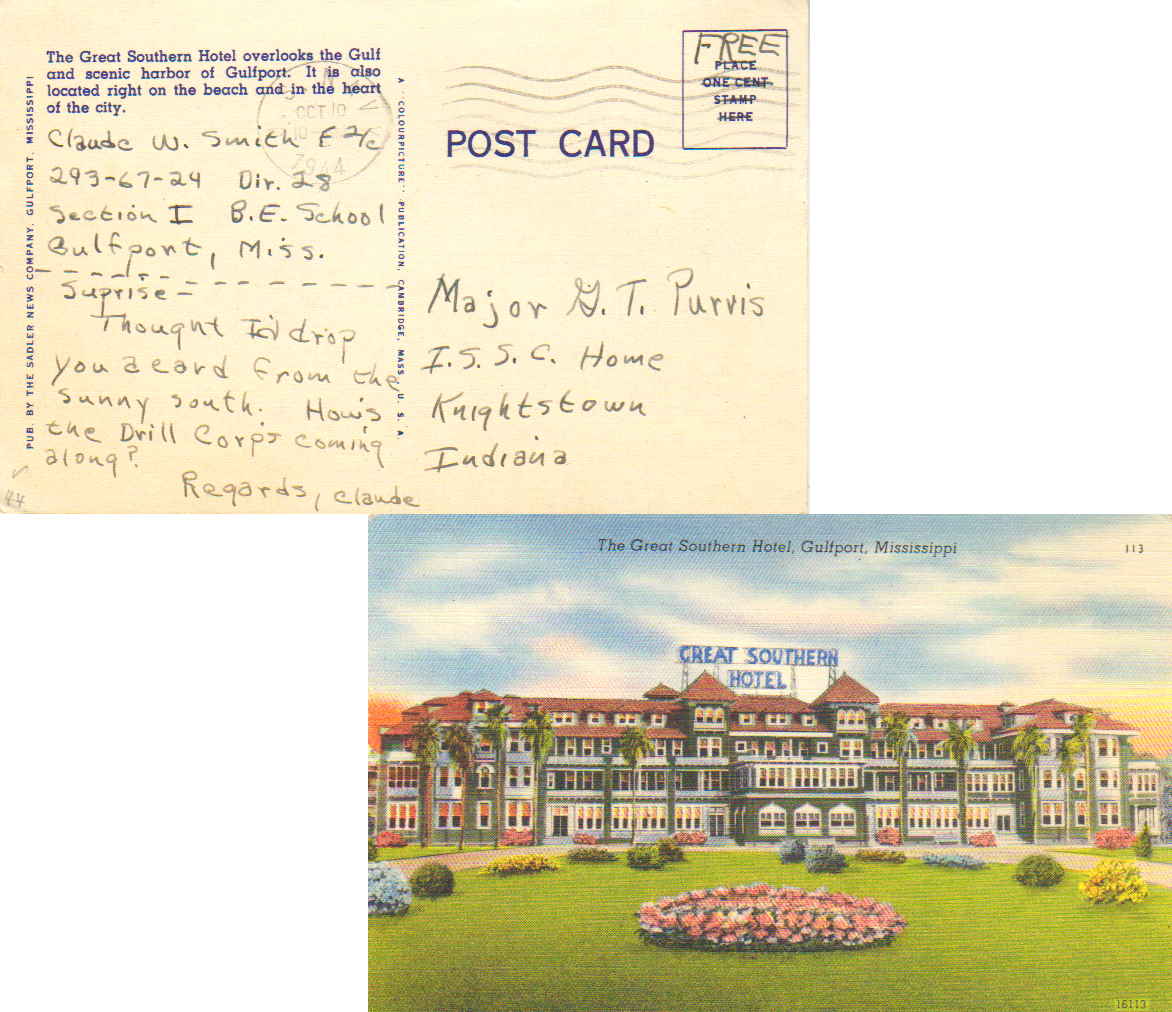 The Great Southern Hotel overlooks the Gulf
and scenic harbor of Gulfport. It is also
located right on the beach and in the heart
of the city.
Claude W. Smith F 2/c
293-67-24 Div. 28
Section I B.E. School
Gulfport, Miss.
Suprise -
Thought I'd drop
you a card from the
sunny south. How's
the Drill Corps coming
along?
Regards, Claude
44
PUB. BY THE SADLER NEWS COMPANY, GULFPORT, MISSISSIPPI
A "COLOURPICTURE" PUBLICATION, CAMBRIDGE, MASS. U. S. A.
OCT 10
1944
POST CARD
FREE
PLACE
ONE CENT
STAMP
HERE
Major G. T. Purvis
I.S.S.C. Home
Knightstown
Indiana
The Great Southern Hotel, Gulfport, Mississippi
113
GREAT SOUTHERN
HOTEL
16113